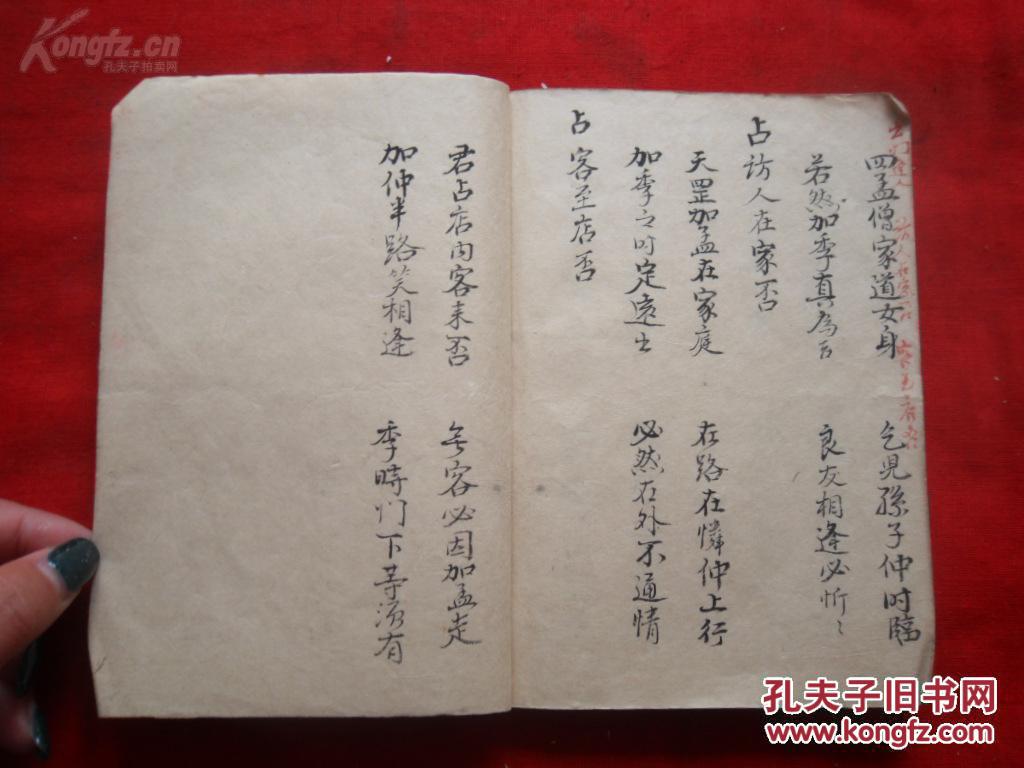 Kongfz.cn
孔夫子拍卖网
訪人在家否
四孟僧家道女身 乞児孫子仲时臨
若然加季真為 良友相逢必忻〻
占訪人在家否
天罡加孟在家庭 在路在憐仲上行
加季之时定遠出 必然在外不通情
占客至店否
君占店内客来否 客必因加孟走
加仲半路笑相逢 季時门下等
孔夫子旧书网
www.kongfz.com